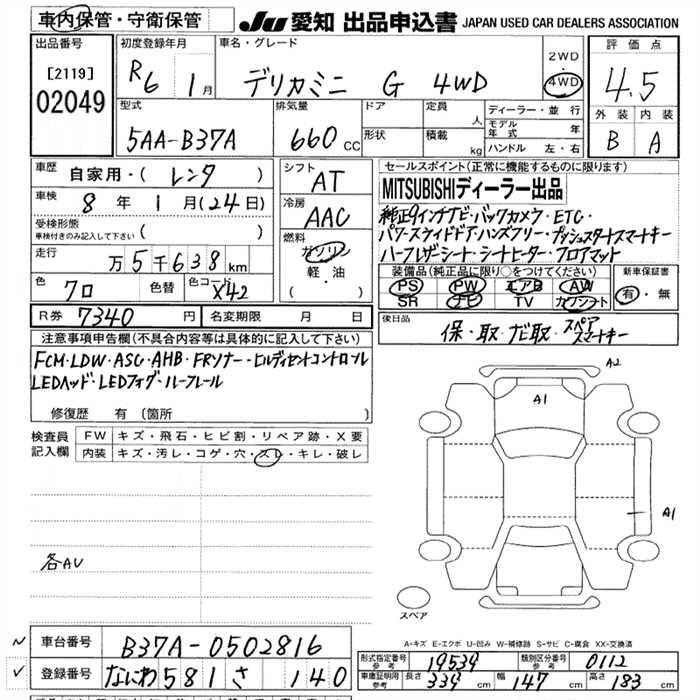 車内保管・守衛保管
JU 愛知 出品申込書 JAPAN USED CAR DEALERS ASSOCIATION
出品番号
[2119]
02049
初度登録年月
R6 1月
車名・グレード
デリカミニ G 4WD
2WD
・
4WD
評価点
4.5
外装 内装
B A
型式
5AA-B37A
排気量
660 CC
ドア
形状
定員 人
積載 kg
ディーラー・並行
モデル年式 年
ハンドル 左・右
車歴 自家用・( レンタ )
車検 8年 1月 (24日)
受検形態
車検付きのみ記入して下さい ( )
走行 万5千638km
色 クロ 色替 色コード X42
シフト
AT
冷房
AAC
燃料
ガソリン
軽・油
( )
セールスポイント(正常に機能するものに限ります)
MITSUBISHIディーラー出品
純正9インチナビ・バックカメラ・ETC・
パワースライドドア・ハンズフリー・プッシュスタートスマートキー
ハーフレザーシート・シートヒーター・フロアマット
装備品(純正品に限り○をつけてください)
PS PW エアB AW
SR ナビ TV カワシート
新車保証書
有・無
R券 7340 円 名変期限 月 日
後日品
保・取・ナビ取・スペアスマートキー
注意事項申告欄(不具合内容等は具体的に記入して下さい)
FCM・LDW・ASC・AHB・FRソナー・ヒルディセントコントロール
LEDヘッド・LEDフォグ・ルーフレール
修復歴 有(箇所 )
検査員記入欄
FW キズ・飛石・ヒビ割・リペア跡・X要
内装 キズ・汚レ・コゲ・穴・スレ・キレ・破レ
各AU
A2
A1
A1
スペア
A-キズ E-エクボ U-凹み W-補修跡 S-サビ C-腐食 XX-交換済
車台番号 B37A-0502816
登録番号 なにわ 581 さ 140
形式指定番号 参考 19539 類別区分番号 参考 0112
車庫証明用 参考 長さ 339 cm 幅 147 cm 高さ 183 cm